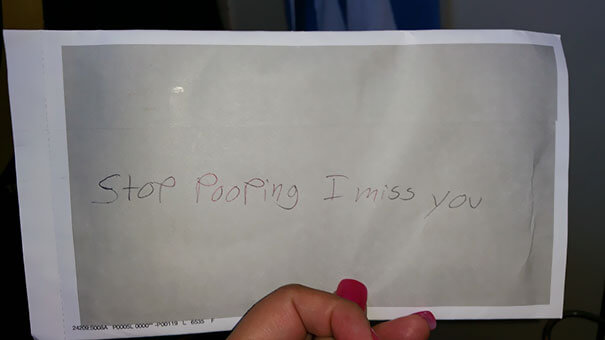 Stop Pooping I miss you
24209 500GA P0005L 0000 -P00119 L 6535 F